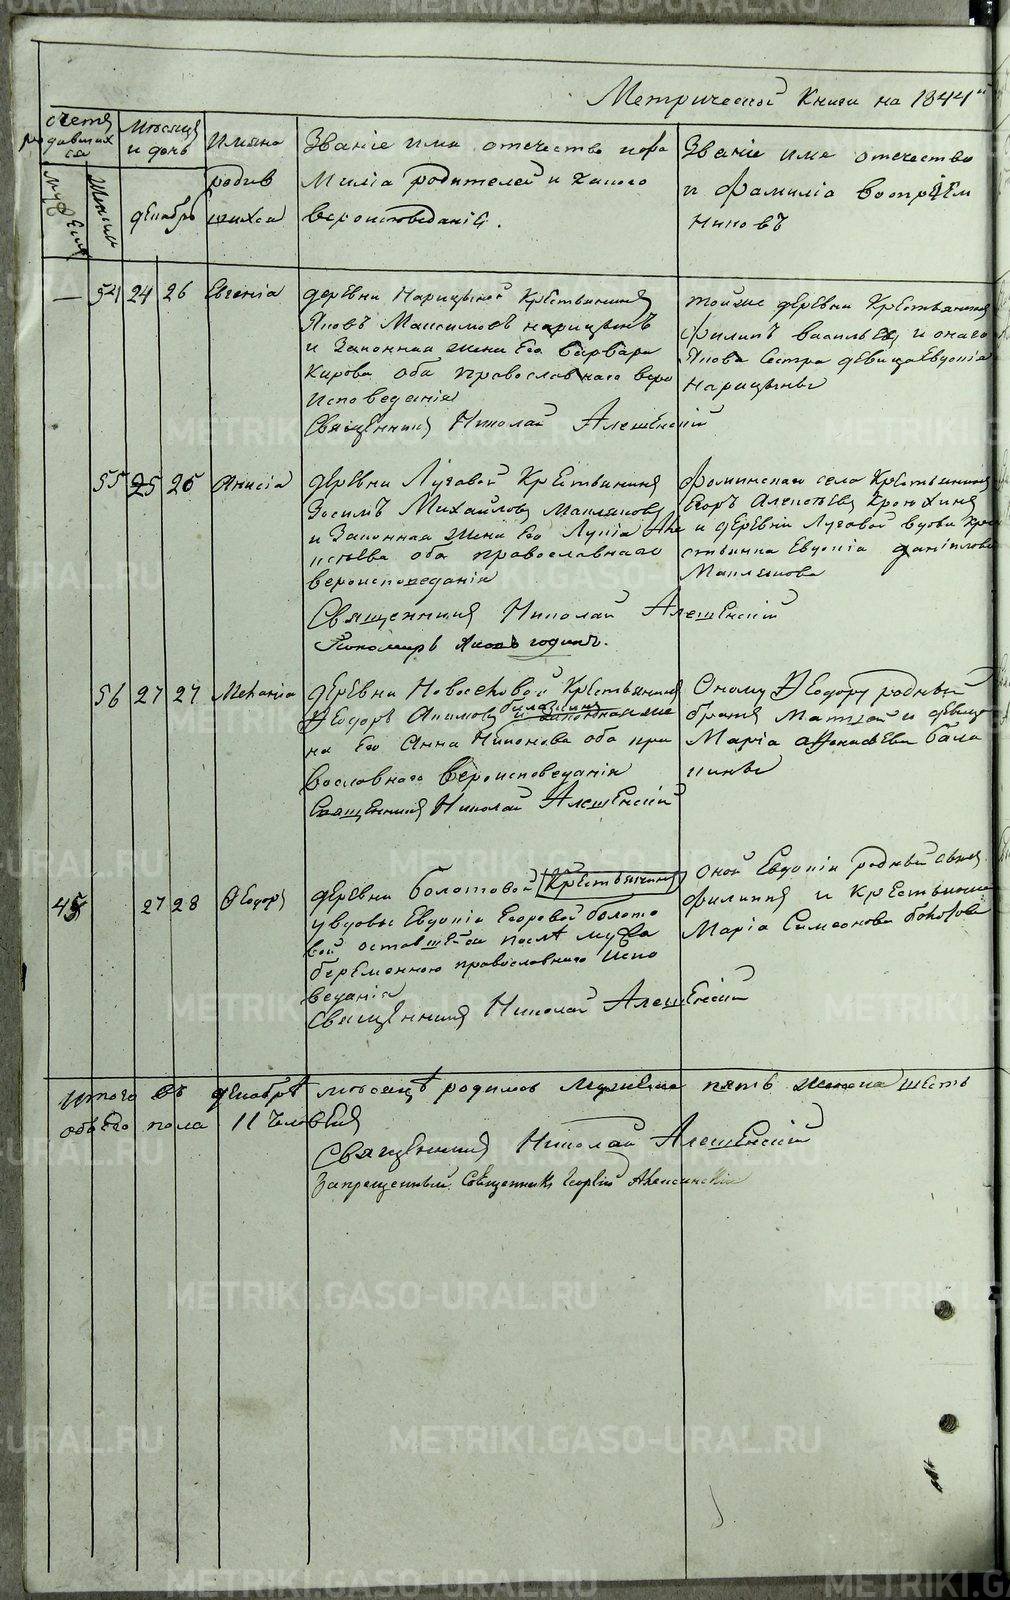 Метрической Книги на 1844
счетъ родившихся
Мѣсяцъ и день
Имена родившихся
Званіе имя отечество и фамилія родителей и какого вероисповеданія.
Званіе имя отечество и фамилія воспріемниковъ
Мужеска
Женска
декабрь
— 54 24 26 Евгенія
деревни Нарицыной Крестьянинъ
Яковъ Максимовъ нарицынъ
и Законная жена Его Варвара
Карпова оба православнаго веро
исповеданія
Священникъ Николай Алешенскій
тойже деревни Крестьянинъ
филипъ васильевъ и онаго
Якова Сестра девица Евдокія
нарицыны
55 25 26 Анисія
деревни Луговой Крестьянинъ
Зосимъ Михайловъ
и Законная жена Его Лукія
оба православнаго
вероисповеданія
Священникъ Николай Алешенскій
Пономарь Яковъ
Фоминскаго села Крестьянинъ
Егоръ Алексѣевъ
и деревни Луговой вдова Кре
стьянка Евдокія даніилова
56 27 27 Меланія
деревни Новоселовой Крестьянинъ
Ѳеодоръ Акимовъ балакинъ и законная же
на Его Анна Никонова оба пра
вославнаго вероисповеданія
Священникъ Николай Алешенскій
Оному Ѳеодору родный
братъ Матѳей и девица
Марія афонасьева бала
кины
45 27 28 Ѳеодоръ
деревни болотовой Крестьянина
у вдовы Евдокіи Егоровой болото
вой оставшейся послѣ мужа
беременною православнаго испо
веданія
Священникъ Николай Алешенскій
оной Евдокіи родный сынъ
филиппъ и Крестьянка
Марія Симеонова болотова
Итого въ декабрѣ мѣсяцѣ родилось Мужеска пять женска шесть
обоего пола 11 человѣкъ
Священникъ Николай Алешенскій
Запрещенный Священникъ Георгій
METRIKI.GASO-URAL.RU